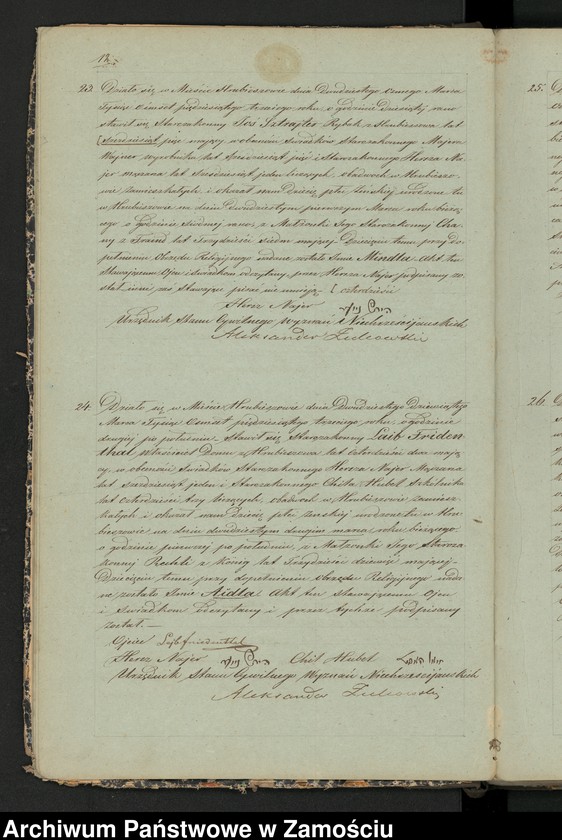 23. Działo się w Mieście Hrubieszowie dnia Dwudziestego Marca
Tysiąc Ośmset pięćdziesiątego trzeciego roku o godzinie Dziesiątej rano
stawił się Starozakonny Jos Sztrajter Rybak z Hrubieszowa lat
sześćdziesiąt pięć mający w obecności świadków Starozakonnego Majera
Wajner wyrobnika lat sześćdziesiąt pięć i Starozakonnego Hersza Na-
jer mężana lat sześćdziesiąt jeden liczących obudwóch w Hrubieszo-
wie zamieszkałych i okazał nam Dziecię płci Żeńskiej urodzone tu
w Hrubieszowie na dniu dwudziestym pierwszym Marca roku bieżą-
cego o godzinie siódmej rano, z Małżonki Jego Starozakonnej Cha-
ny z lat Trzydzieści siedm mającej. Dziecięciu temu przy do-
pełnieniu Obrzędu Religijnego nadane zostało Imie Mindla. Akt ten
Stawającemu Ojcu i świadkom odczytany, przez Hersza Najer podpisany zo-
stał inni zaś Stawający pisać nie umieją. czterdzieści
Hersz Najer
Urzędnik Stanu Cywilnego Wyznań Niechrześcijańskich
Aleksander
24. Działo się w Mieście Hrubieszowie dnia Dwudziestego Dziewiątego
Marca Tysiąc Ośmset pięćdziesiątego trzeciego roku o godzinie
drugiej po południu. Stawił się Starozakonny Lejb Friden
thal właściciel Domu z Hrubieszowa lat czterdzieści dwa mają-
cy, w obecności Świadków Starozakonnego Hersza Najer Mężana
lat sześćdziesiąt jeden i Starozakonnego Chila Hubel Szkolnika
lat czterdzieści trzy liczących, obudwóch w Hrubieszowie zamiesz-
kałych i okazał nam Dziecię płci Żeńskiej urodzone tu w Hru-
bieszowie na dniu dwudziestym drugim marca roku bieżącego
o godzinie pierwszej po południu, z Małżonki Jego Staroza
konnej Rechli z König lat Trzydzieści dziewięć mającej.
Dziecięciu temu przy dopełnieniu obrzędu Religijnego nada-
ne zostało Imie Aidla. Akt ten Stawającemu Ojcu
i Świadkom odczytany i przez tychże podpisany
został.
Ojciec
Hersz Najer Chil Hubel
Urzędnik Stanu Cywilnego Wyznań Niechrześcijańskich
Aleksander
25.
26.
Archiwum Państwowe w Zamościu